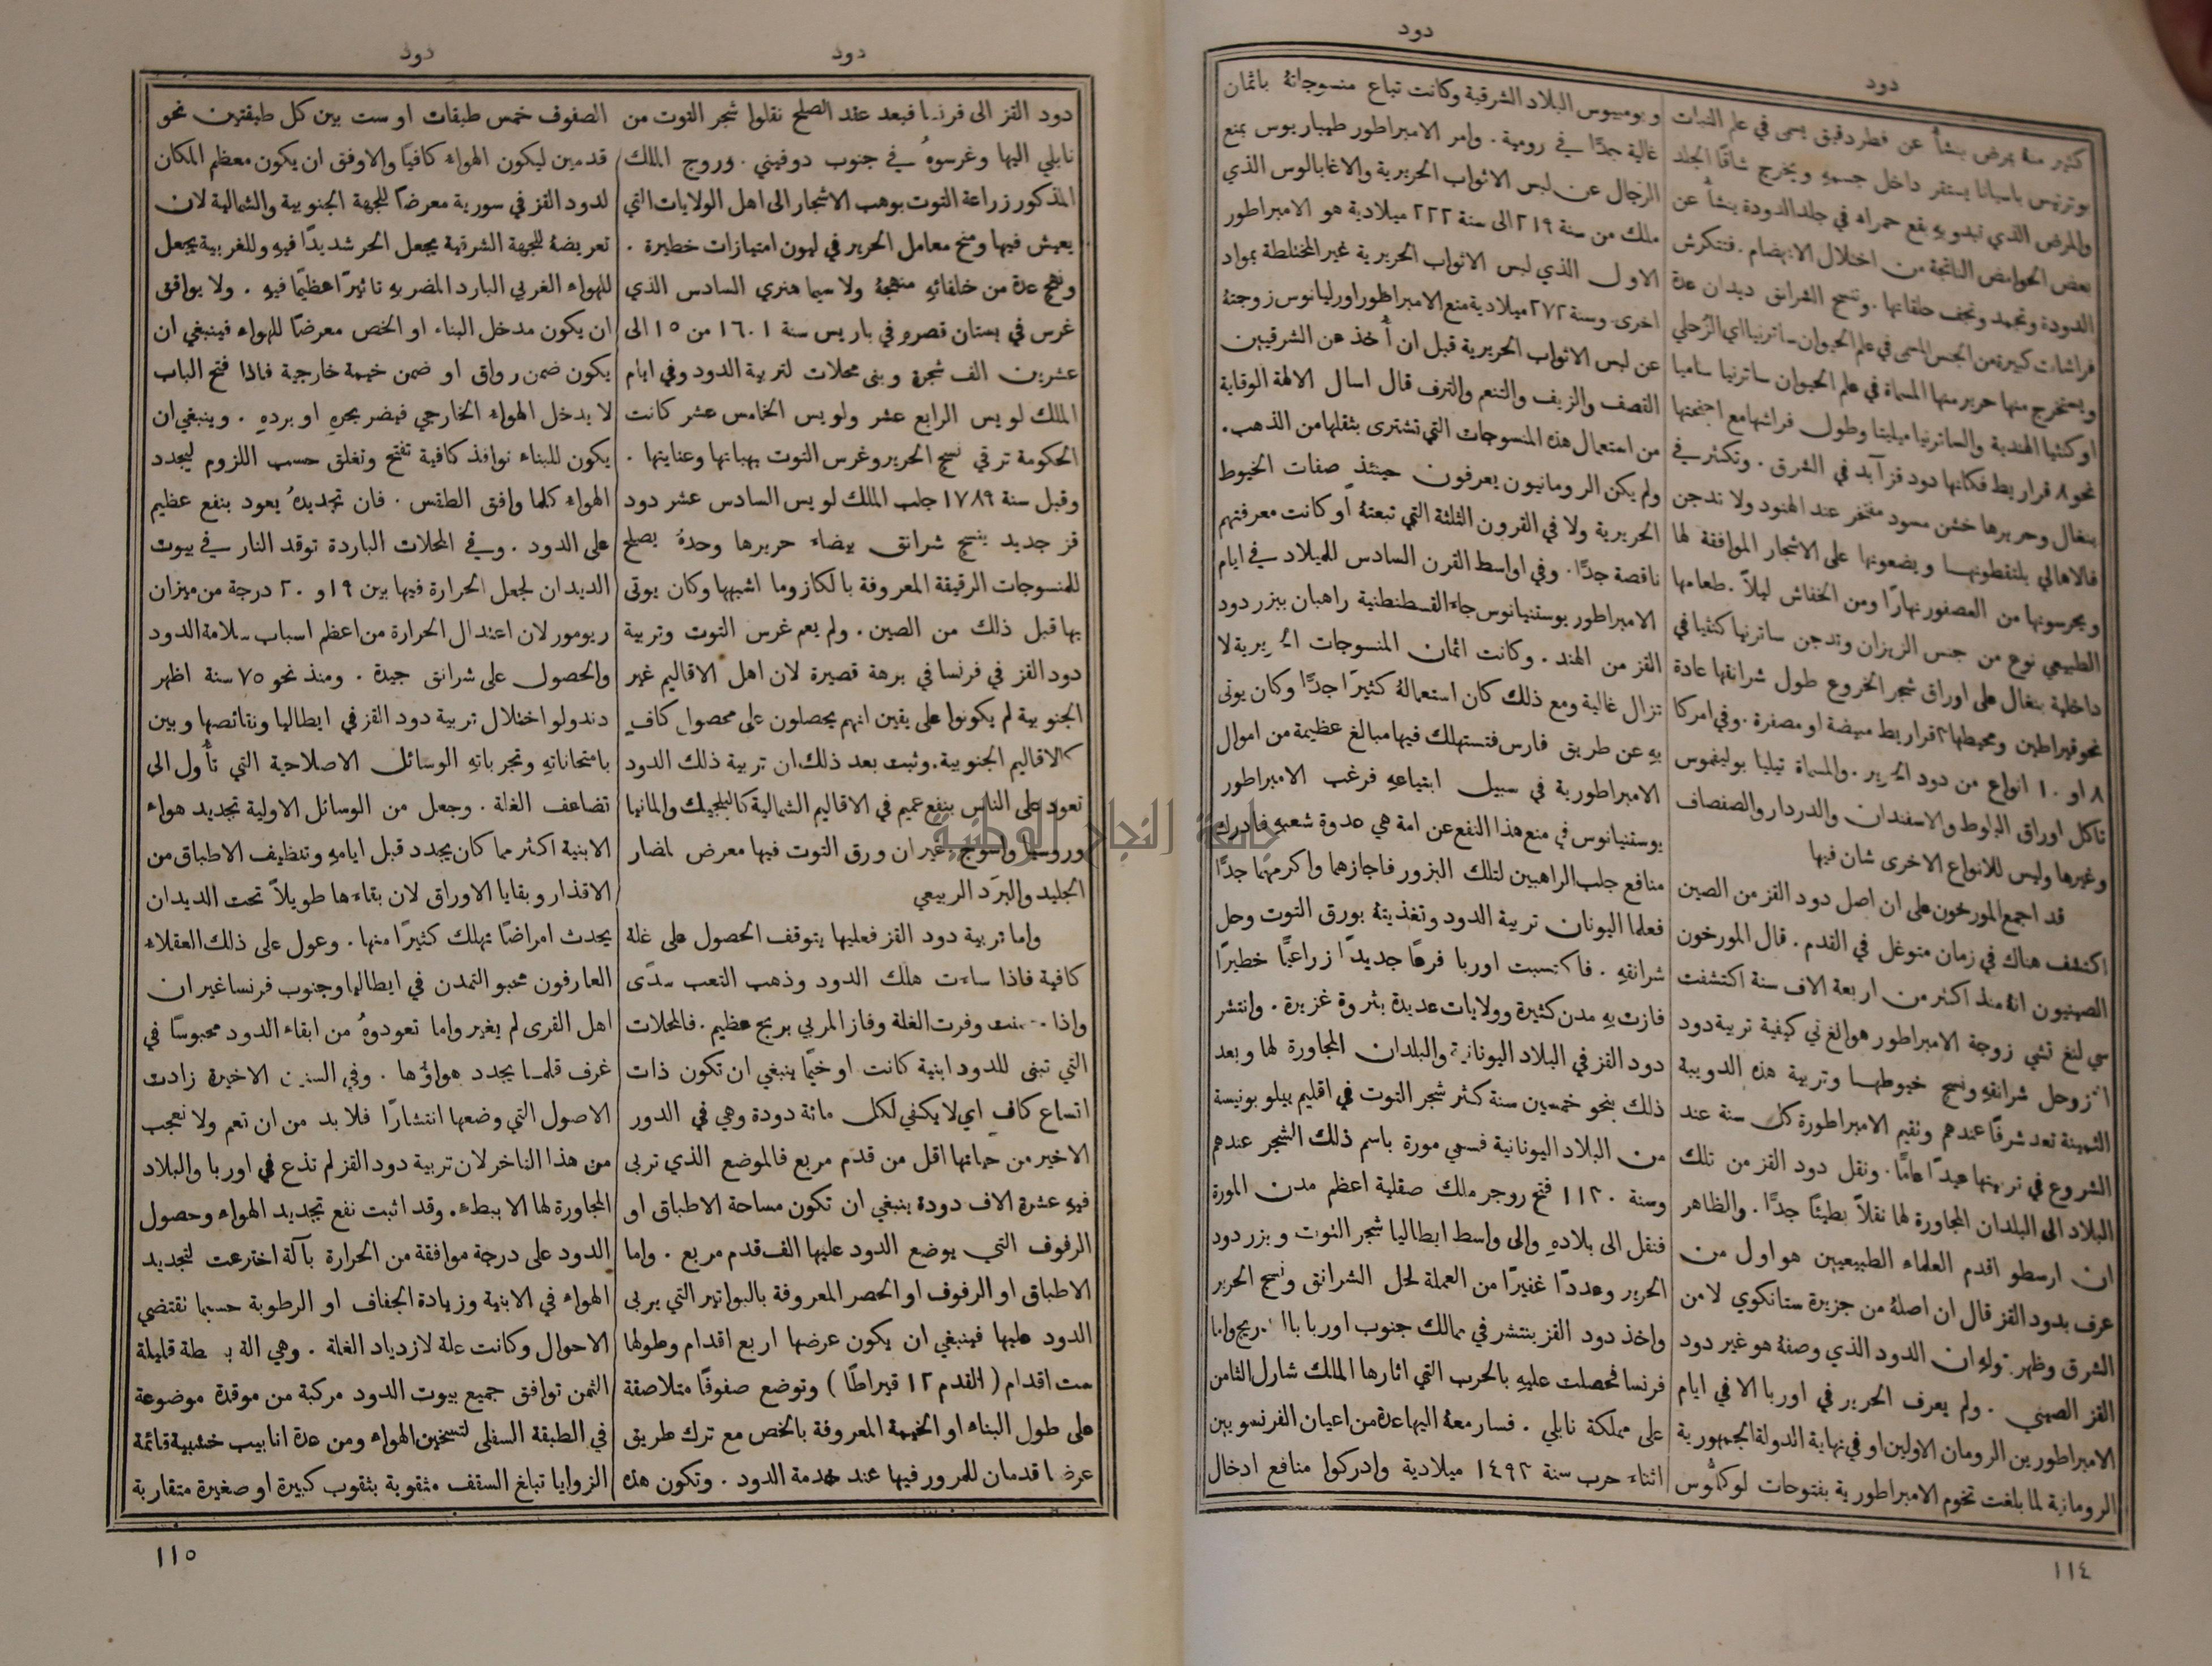 دود
دود
كثير منهُ بمرض ينشأ عن فطر دقيق يسمى في علم النبات
بوتريتس باسيانا يستقر داخل جسمهِ ويخرج شاقًا الجلد
والمرض الذي تبدو بهِ بقع حمراء في جلد الدودة ينشأ عن
بعض الحوامض الناتجة من اختلال الانهضام . فتتكرش
الدودة وتجمد وتجف حلقاتها . وتنسج الشرانق ديدان عدة
فراشات كبيرة من الجنس المسمى في علم الحيوان ساترنيا اي الزُحلي
ويستخرج منها حرير منها المسماة في علم الحيوان ساترنيا سامبا
او كنثيا الهندية والساترنيا ميليتا وطول فراشها مع اجنحتها
نحو ٨ قراريط فكانها دود قز آبد في الشرق . وتكثر في
بنغال وحريرها خشن مسود مفتخر عند الهنود ولا تدجن
فالاهالي يلتقطونها ويضعونها على الاشجار الموافقة لها
ويحرسونها من العصفور نهارًا ومن الخفاش ليلاً . طعامها
الطبيعي نوع من جنس الزيزان وتدجن ساترنيا كنثيا في
داخلية بنغال على اوراق شجر الخروع طول شرانقها عادة
نحو قيراطين ومحيطها ٢ قراريط مبيضة او مصفرة . وفي امركا
٨ او ١٠ انواع من دود الحرير . والمسماة تيليا بوليفموس
تاكل اوراق البلوط والاسفندان والدردار والصفصاف
وغيرها وليس للانواع الاخرى شان فيها
قد اجمع المورخون على ان اصل دود القز من الصين
اكتشف هناك في زمان متوغل في القدم . قال المورخون
الصينيون انهُ منذ اكثر من اربعة الاف سنة اكتشفت
سي لنغ تشي زوجة الامبراطور هوانغ تي كيفية تربية دود
القز وحل شرانقهِ ونسج خيوطها وتربية هذه الدويبة
الثمينة تعد شرفًا عندهم وتقيم الامبراطورة كل سنة عند
الشروع في تربيتها عيدًا عامًا . ونقل دود القز من تلك
البلاد الى البلدان المجاورة لها نقلاً بطيئًا جدًّا . والظاهر
ان ارسطو اقدم العلماء الطبيعيين هو اول من
عرف بدود القز قال ان اصلهُ من جزيرة ستانكوي لا من
الشرق وظهر قولهِ ان الدود الذي وصفهُ هو غير دود
القز الصيني . ولم يعرف الحرير في اوربا الا في ايام
الامبراطورين الرومان الاولين او في نهاية الدولة الجمهورية
الرومانية لما بلغت تخوم الامبراطورية بفتوحات لوكلُّوس
وبومبيوس البلاد الشرقية وكانت تباع منسوجاتهُ باثمان
غالية جدًّا في رومية . وامر الامبراطور طيباريوس بمنع
الرجال عن لبس الاثواب الحريرية والاغابالوس الذي
ملك من سنة ٢١٩ الى سنة ٢٢٢ ميلادية هو الامبراطور
الاول الذي لبس الاثواب الحريرية غير المختلطة بمواد
اخرى وسنة ٢٧٢ ميلادية منع الامبراطور اورليانوس زوجتهُ
عن لبس الاثواب الحريرية قبل ان أُخذ عن الشرقيين
القصف والزيف والتنعم والترف قال اسال الالهة الوقاية
من استعمال هذه المنسوجات التي تشترى بثقلها من الذهب .
ولم يكن الرومانيون يعرفون حينئذٍ صفات الخيوط
الحريرية ولا في القرون الثلثة التي تبعتهُ او كانت معرفتهم
ناقصة جدًّا . وفي اواسط القرن السادس للميلاد في ايام
الامبراطور يوستنيانوس جاء القسطنطنية راهبان ببزر دود
القز من الهند . وكانت اثمان المنسوجات الحريرية لا
تزال غالية ومع ذلك كان استعمالهُ كثيرًا جدًّا وكان يوتى
بهِ عن طريق فارس فتستهلك فيها مبالغ عظيمة من اموال
الامبراطورية في سبيل ابتياعهِ فرغب الامبراطور
يوستنيانوس في منع هذا النفع عن امة هي عدوة شعبهِ فادرك
منافع جلب الراهبين لتلك البزور فاجازهما واكرمهما جدًّا
فعلما اليونان تربية الدود وتغذيتهُ بورق التوت وحل
شرانقهِ . فاكتسبت اوربا فرعًا جديدًا زراعيًّا خطيرًا
فازت بهِ مدن كثيرة وولايات عديدة بثروة غزيرة . وانتشر
دود القز في البلاد اليونانية والبلدان المجاورة لها وبعد
ذلك بنحو خمسين سنة كثر شجر التوت في اقليم بيلوبونيسة
من البلاد اليونانية فسمي مورة باسم ذلك الشجر عندهم
وسنة ١١٣٠ فتح روجر ملك صقلية اعظم مدن المورة
فنقل الى بلادهِ والى واسط ايطاليا شجر التوت وبزر دود
الحرير وعددًا غفيرًا من العملة لحل الشرانق ونسج الحرير
واخذ دود القز ينتشر في ممالك جنوب اوربا بالتدريج واما
فرنسا فحصلت عليهِ بالحرب التي اثارها الملك شارل الثامن
على مملكة نابلي . فسار معهُ اليها عدة من اعيان الفرنسويين
اثناء حرب سنة ١٤٩٣ ميلادية وادركوا منافع ادخال
١١٤
دود
دود
دود القز الى فرنسا فبعد عقد الصلح نقلوا شجر التوت من
نابلي اليها وغرسوهُ في جنوب دوفيني . وروج الملك
المذكور زراعة التوت بوهب الاشجار الى اهل الولايات التي
يعيش فيها ومنح معامل الحرير في ليون امتيازات خطيرة .
ونهج عدة من خلفائهِ منهجهُ ولا سيما هنري السادس الذي
غرس في بستان قصره في باريس سنة ١٦٠١ من ١٥ الى
عشرين الف شجرة وبنى محلات لتربية الدود وفي ايام
الملك لويس الرابع عشر ولويس الخامس عشر كانت
الحكومة ترقي نسج الحرير وغرس التوت بهباتها وعنايتها .
وقبل سنة ١٧٨٩ جلب الملك لويس السادس عشر دود
قز جديد ينسج شرانق بيضاء حريرها وحدهُ يصلح
للمنسوجات الرقيقة المعروفة بالكاز وما اشبهها وكان يوتى
بها قبل ذلك من الصين . ولم يعم غرس التوت وتربية
دود القز في فرنسا في برهة قصيرة لان اهل الاقاليم غير
الجنوبية لم يكونوا على يقين انهم يحصلون على محصول كافٍ
كالاقاليم الجنوبية . وثبت بعد ذلك ان تربية ذلك الدود
تعود على الناس بنفع عميم في الاقاليم الشمالية كالبلجيك والمانيا
وروسيا واسوج غير ان ورق التوت فيها معرض لمضار
الجليد والبرَد الربيعي
واما تربية دود القز فعليها يتوقف الحصول على غلة
كافية فاذا ساءت هلك الدود وذهب التعب سدًى
واذا حسنت وفرت الغلة وفاز المربي بربح عظيم . فالمحلات
التي تبنى للدود ابنية كانت او خيمًا ينبغي ان تكون ذات
اتساع كافٍ اي لا يكفي لكل مائة دودة وهي في الدور
الاخير من حياتها اقل من قدَم مربع فالموضع الذي تربى
فيهِ عشرة الاف دودة ينبغي ان تكون مساحة الاطباق او
الرفوف التي يوضع الدود عليها الف قدم مربع . واما
الاطباق او الرفوف او الحصر المعروفة بالبواتير التي يربى
الدود عليها فينبغي ان يكون عرضها اربع اقدام وطولها
ست اقدام ( القدم ١٢ قيراطًا ) وتوضع صفوفًا متلاصقة
على طول البناء او الخيمة المعروفة بالخص مع ترك طريق
عرضها قدمان للمرور فيها عند خدمة الدود . وتكون هذه
الصفوف خمس طبقات او ست بين كل طبقتين نحو
قدمين ليكون الهواء كافيًا والاوفق ان يكون معظم المكان
لدود القز في سورية معرضًا للجهة الجنوبية والشمالية لان
تعريضهُ للجهة الشرقية يجعل الحر شديدًا فيهِ وللغربية يجعل
للهواء الغربي البارد المضر بهِ تاثيرًا عظيمًا فيهِ . ولا يوافق
ان يكون مدخل البناء او الخص معرضًا للهواء فينبغي ان
يكون ضمن رواق او ضمن خيمة خارجية فاذا فتح الباب
لا يدخل الهواء الخارجي فيضر بحرهِ او بردهِ . وينبغي ان
يكون للبناء نوافذ كافية تفتح وتغلق حسب اللزوم ليجدد
الهواء كلما وافق الطقس . فان تجديدهُ يعود بنفع عظيم
على الدود . وفي المحلات الباردة توقد النار في بيوت
الديدان لجعل الحرارة فيها بين ١٩ و ٢٠ درجة من ميزان
ريومور لان اعتدال الحرارة من اعظم اسباب سلامة الدود
والحصول على شرانق جيدة . ومنذ نحو ٧٥ سنة اظهر
دندولو اختلال تربية دود القز في ايطاليا ونقائصها وبين
بامتحاناتهِ وتجرباتهِ الوسائل الاصلاحية التي تأُول الى
تضاعف الغلة . وجعل من الوسائل الاولية تجديد هواء
الابنية اكثر مما كان يجدد قبل ايامهِ وتنظيف الاطباق من
الاقذار وبقايا الاوراق لان بقاءها طويلاً تحت الديدان
يحدث امراضًا تهلك كثيرًا منها . وعول على ذلك العقلاء
العارفون محبو التمدن في ايطاليا وجنوب فرنسا غير ان
اهل القرى لم يغيروا ما تعودوهُ من ابقاء الدود محبوسًا في
غرف قلما يجدد هواؤها . وفي السنين الاخيرة زادت
الاصول التي وضعها انتشارًا فلا بد من ان تعم ولا نعجب
من هذا التاخر لان تربية دود القز لم تذع في اوربا والبلاد
المجاورة لها الا ببطء . وقد اثبت نفع تجديد الهواء وحصول
الدود على درجة موافقة من الحرارة بآلة اخترعت لتجديد
الهواء في الابنية وزيادة الجفاف او الرطوبة حسبما تقتضي
الاحوال وكانت علة لازدياد الغلة . وهي آلة بسيطة قليلة
الثمن توافق جميع بيوت الدود مركبة من موقدة موضوعة
في الطبقة السفلى لتسخين الهواء ومن عدة انابيب خشبية قائمة
الزوايا تبلغ السقف مثقوبة بثقوب كبيرة او صغيرة متقاربة
١١٥
جامعة النجاح الوطنية